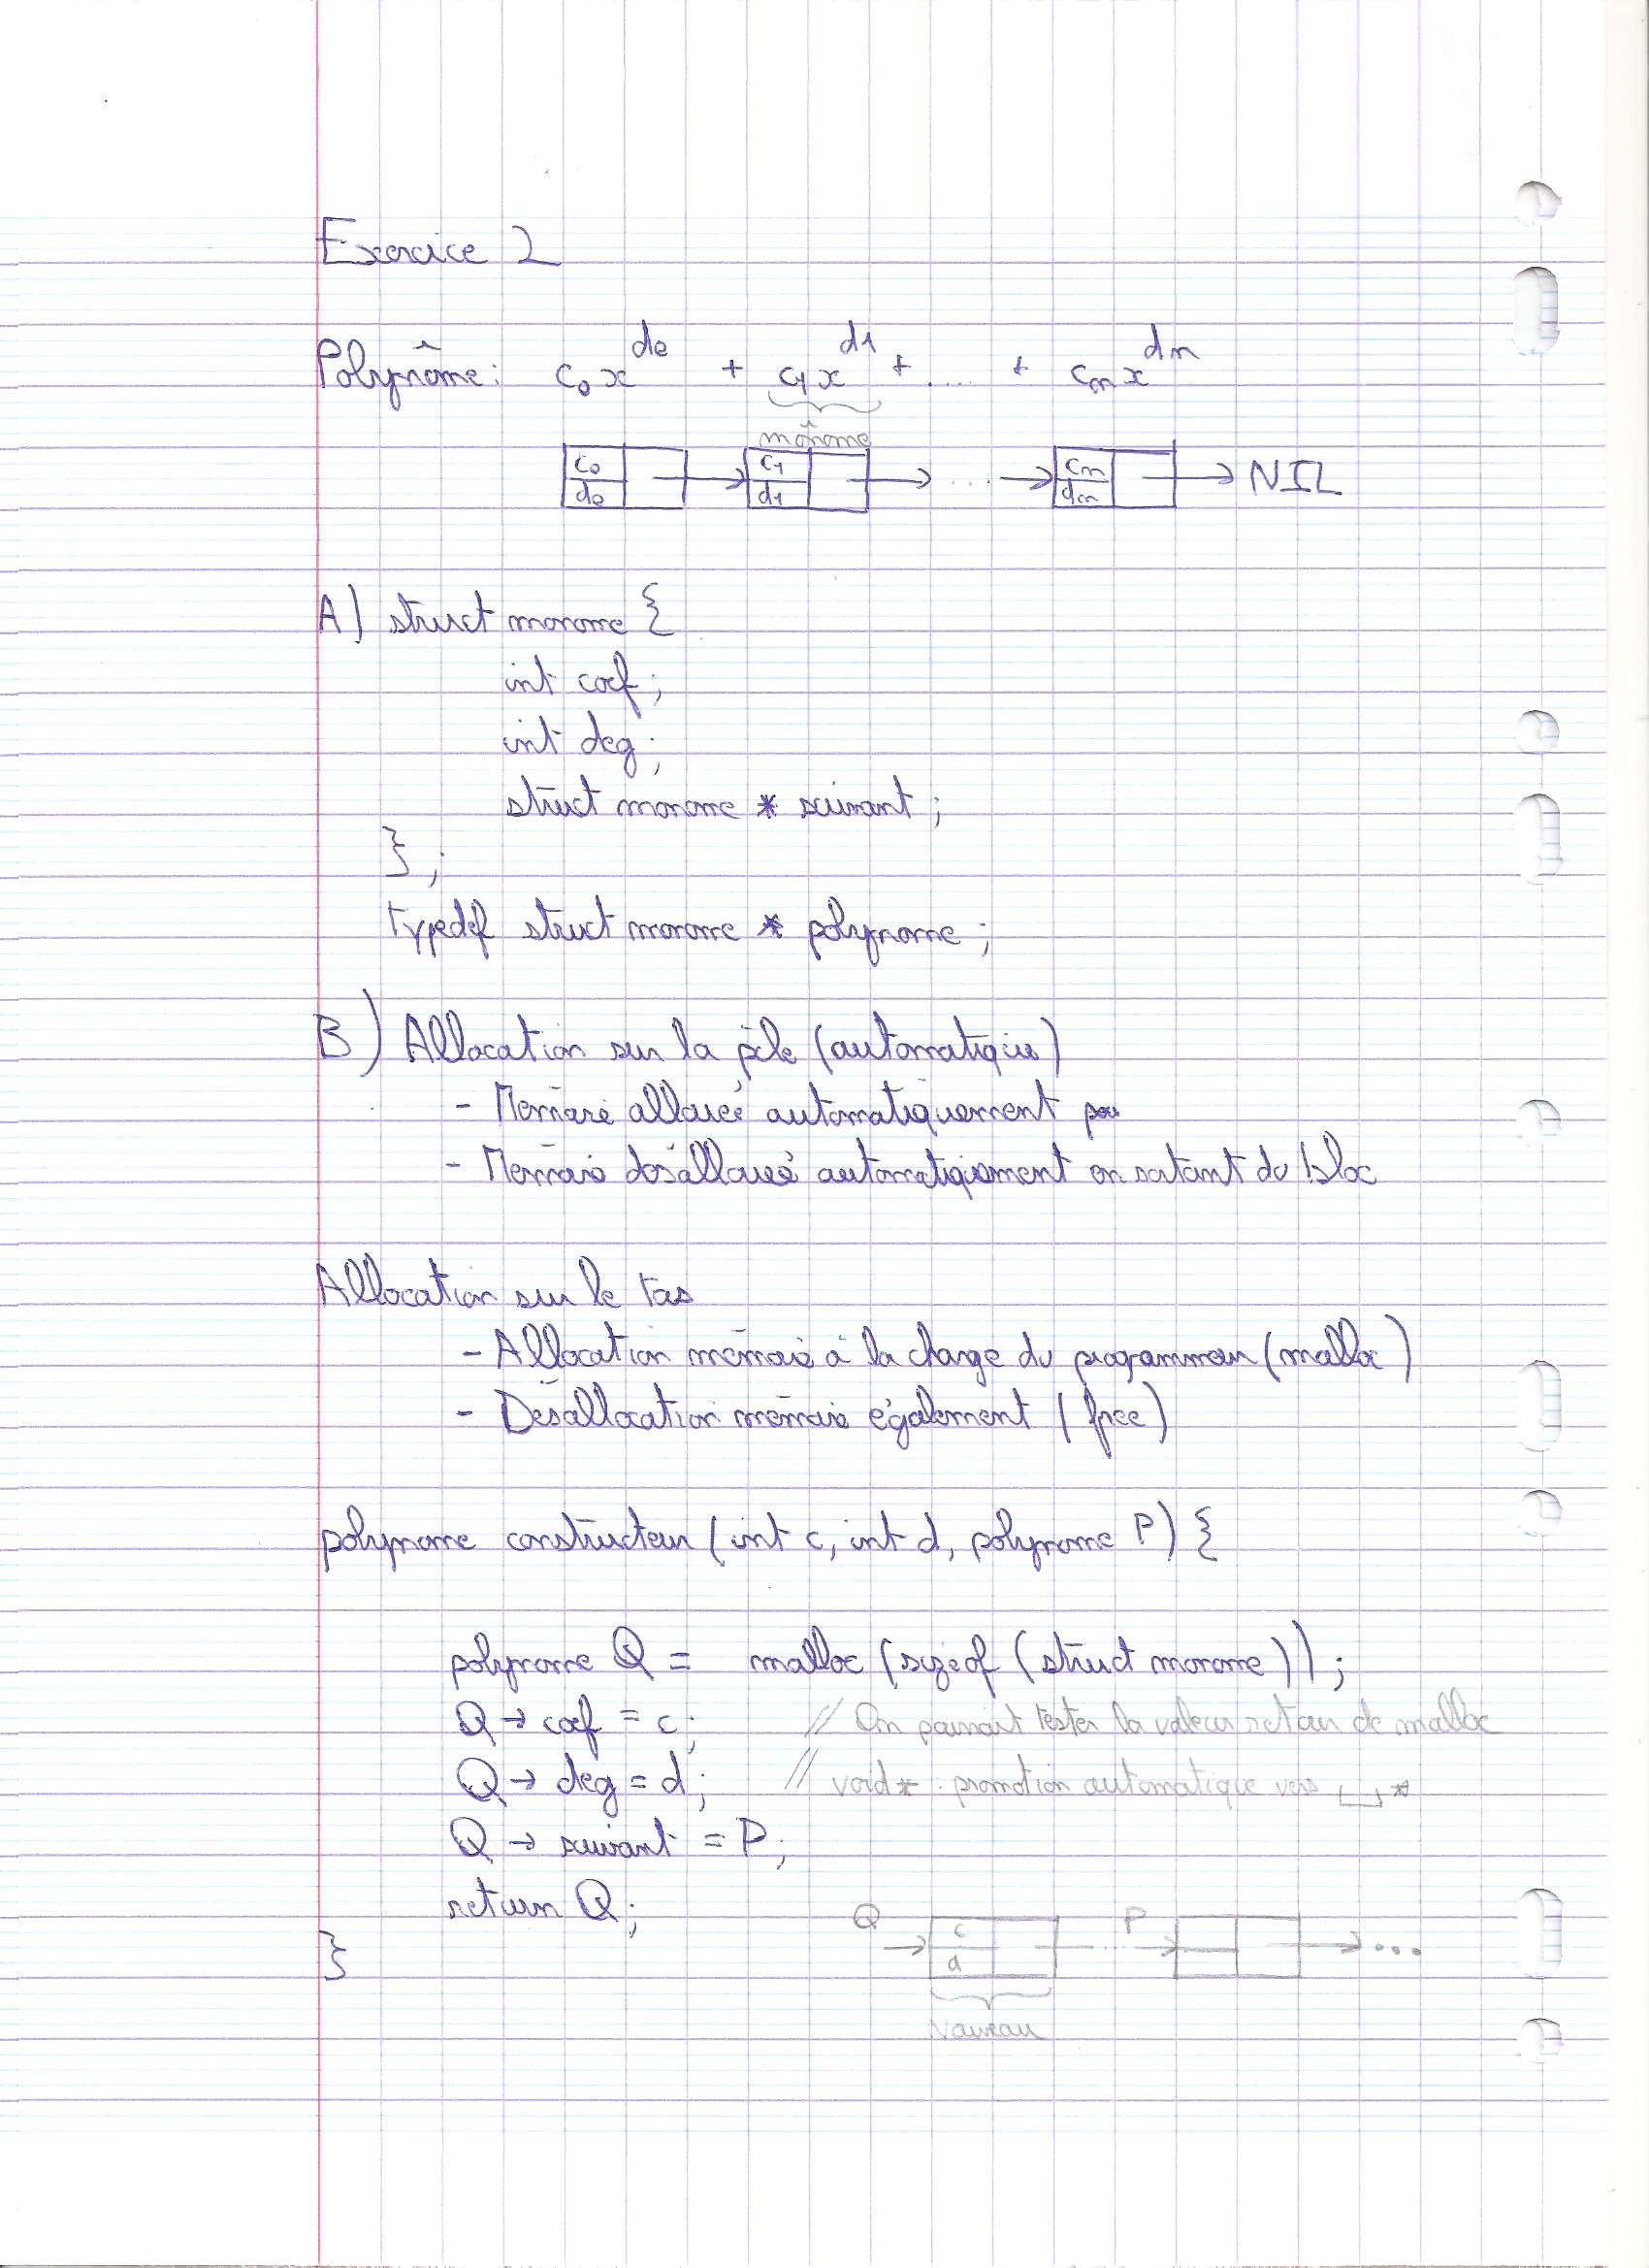 Exercice 2
Polynôme : c0 x^d0 + c1 x^d1 + .... + cn x^dn
monome
c0 d0 → c1 d1 → ... → cn dn → NIL
A) struct monome {
int coef;
int deg;
struct monome * suivant;
};
typedef struct monome * polynome;
B) Allocation sur la pile (automatique)
- Mémoire allouée automatiquement
- Mémoire désallouée automatiquement en sortant du bloc
Allocation sur le tas
- Allocation mémoire à la charge du programmeur (malloc)
- Désallocation mémoire également (free)
polynome constructeur (int c, int d, polynome P) {
polynome Q = malloc (sizeof (struct monome));
Q → coef = c; // On pourrait tester la valeur retour de malloc
Q → deg = d; // void* : promotion automatique vers ⎵*
Q → suivant = P;
return Q;
}
Q → c d ... P → → ...
Nouveau